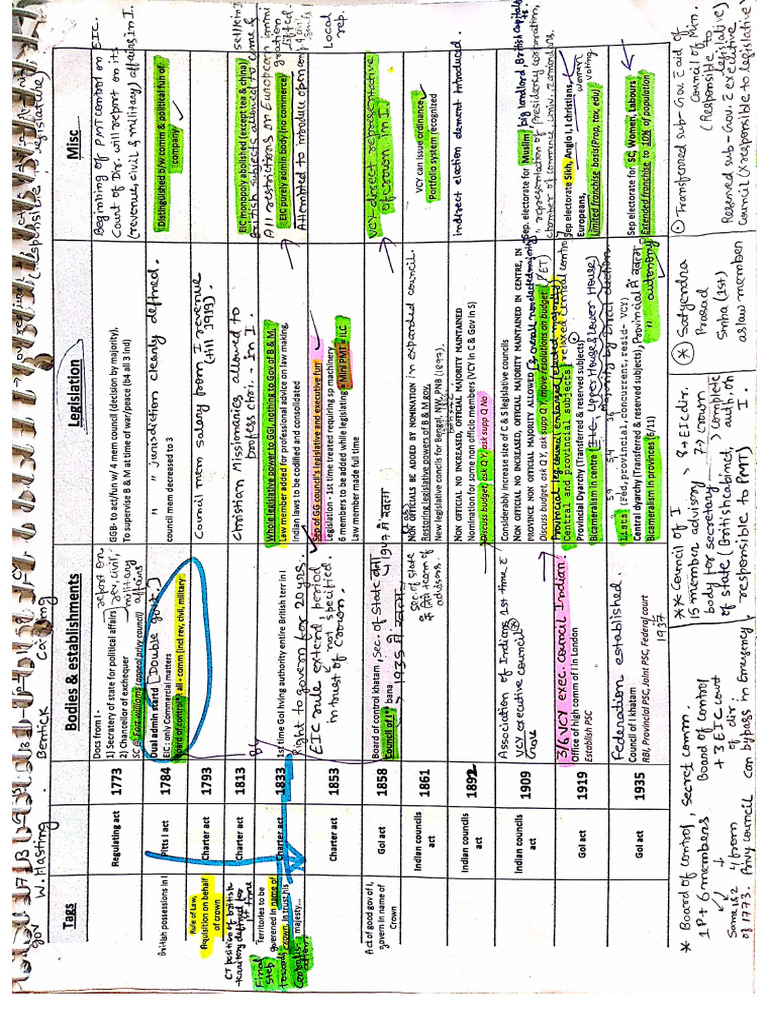 gov
W. Hasting.
Bentick
Canning
(responsible
Tags
Bodies & establishments
Legislation
Misc
Regulating act
1773
Docs from I -
1) Secretary of state for political affair
2) Chancellor of exchequer
report on
rev, civil,
military
affairs
SC @ Fort williams (appeal privy council)
GGB- to act/fun w/ 4 mem council (decision by majority),
To supervise B & M at time of war/peace (b4 all 3 ind)
Beginning of PMT control on EIC.
Court of Dir. will report on its
(revenue, civil & military) affairs in I.
British possessions in I
Pitts I act
1784
Dual admin startd (Double govt.)
EIC : only Commercial matters
Board of control : all - comm (incl rev, civil, military
" " jurisdiction clearly defined.
council mem decreased to 3
Distinguished b/w comm & political fun of
company
Rule of Law,
Aquisition on behalf
of crown
Charter act
1793
Council mem salary from I revenue
(till 1919).
CT position of british
territory defined for
1st time
Charter act
1813
Christian Missionaries allowed to
profess chri. - in I.
EIC monopoly abolished (except tea & china)
British subjects allowed to come &
Territories to be
governed in name of
crown, in trust his
majesty...
Final
step
towards
Charter act
1833
1st time GoI hving authority entire British terr in I
Right to govern for 20 yrs.
Whole legislative power to GGI, nothing to Gov of B & M,
Law member added for professional advice on law making,
Indian laws to be codified and consolidated
All restrictions on European immi
gration
lifted
EIC purely admin body (no commerce)
Attempted to introduce open comp
Charter act
1853
EIC rule extend, period
not specified.
in trust of Crown.
Sep of GG council's legislative and executive fun
Legislation - 1st time treated requiring sp machinery
6 members to be added while legislating = Mini PMT = ILC
Law member made full time
Local
rep.
Act of good gov of I,
govern in name of
Crown
GoI act
1858
Board of control khatam, Sec. of state बना
Council of I bana
1947 में हटा
1935 में
VCY - direct representative
of crown in I.
Indian councils
act
1861
Sec. of state
NON OFFICIALS BE ADDED BY NOMINATION in expanded council.
Restoring legislative powers of B & M gov,
New legislative concils for Bengal, NW, PNB (1897).
VCY can issue ordinance
Portfolio system recognized
Indian councils
act
1892
NON OFFICIAL NO INCREASED, OFFICIAL MAJORITY MAINTAINED
Nomination for some non officio members (VCY in C & Gov in S)
Discuss budget, ask Q Y, ask supp Q No
indirect election element introduced.
Indian councils
act
1909
Association of Indians 1st time
VCY executive council
Considerably increase size of C & S legislative councils
NON OFFICIAL NO INCREASED, OFFICIAL MAJORITY MAINTAINED IN CENTRE, IN
PROVINCE NON OFFICIAL MAJORITY ALLOWED
Discuss budget, ask Q Y, ask supp Q Y, move resolutions on budget
Sep. electorate for Muslim
big landlord, British capitalists
representation of presidency corporation,
chamber of commerce, Univ.
GoI act
1919
3/6 VCY exec. council Indian
Office of high comm of I in London
Establish PSC
Provincial leg council enlarged
relaxed central control
Central and provincial subjects
Provincial Dyarchy (Transferred & reserved subjects)
Bicameralism in centre i.e. Upper House & lower House
Sep electorate Sikh, Anglo I, I christians,
Europeans,
women
voting
Limited franchise basis(Prop, tax, edu)
GoI act
1935
Federation established.
Council of I khatam
RBI, Provincial PSC, Joint PSC, Federal court
1937
59 54 36
Lists (Fed, provincial, concurrent, resid- VCY)
Central dyarchy (Transferred & reserved subjects),
Provincial में हटा
" autonomy
Bicameralism in provinces (6/11)
Sep electorate for SC, Women, Labours
Extended franchise to 10% of population
* Board of control, secret comm.
1P + 6 members
Board of control
+ 3 EIC court
of dir.
Same 1&2
of 1773.
4 from
Privy council
can bypass in Emergency
** Council of I
15 member advisory
body for secretary
of state (british cabined,
responsible to PMT)
8 → EI c dir.
7 → crown
complete
auth. on
I.
* Satyendra
Prasad
Sinha (1st)
as law member
Transferred sub - Gov. c̄ aid of
Council of Min.
(Responsible to
legislative)
Reserved sub - Gov. c̄ executive
Council (X responsible to legislative)